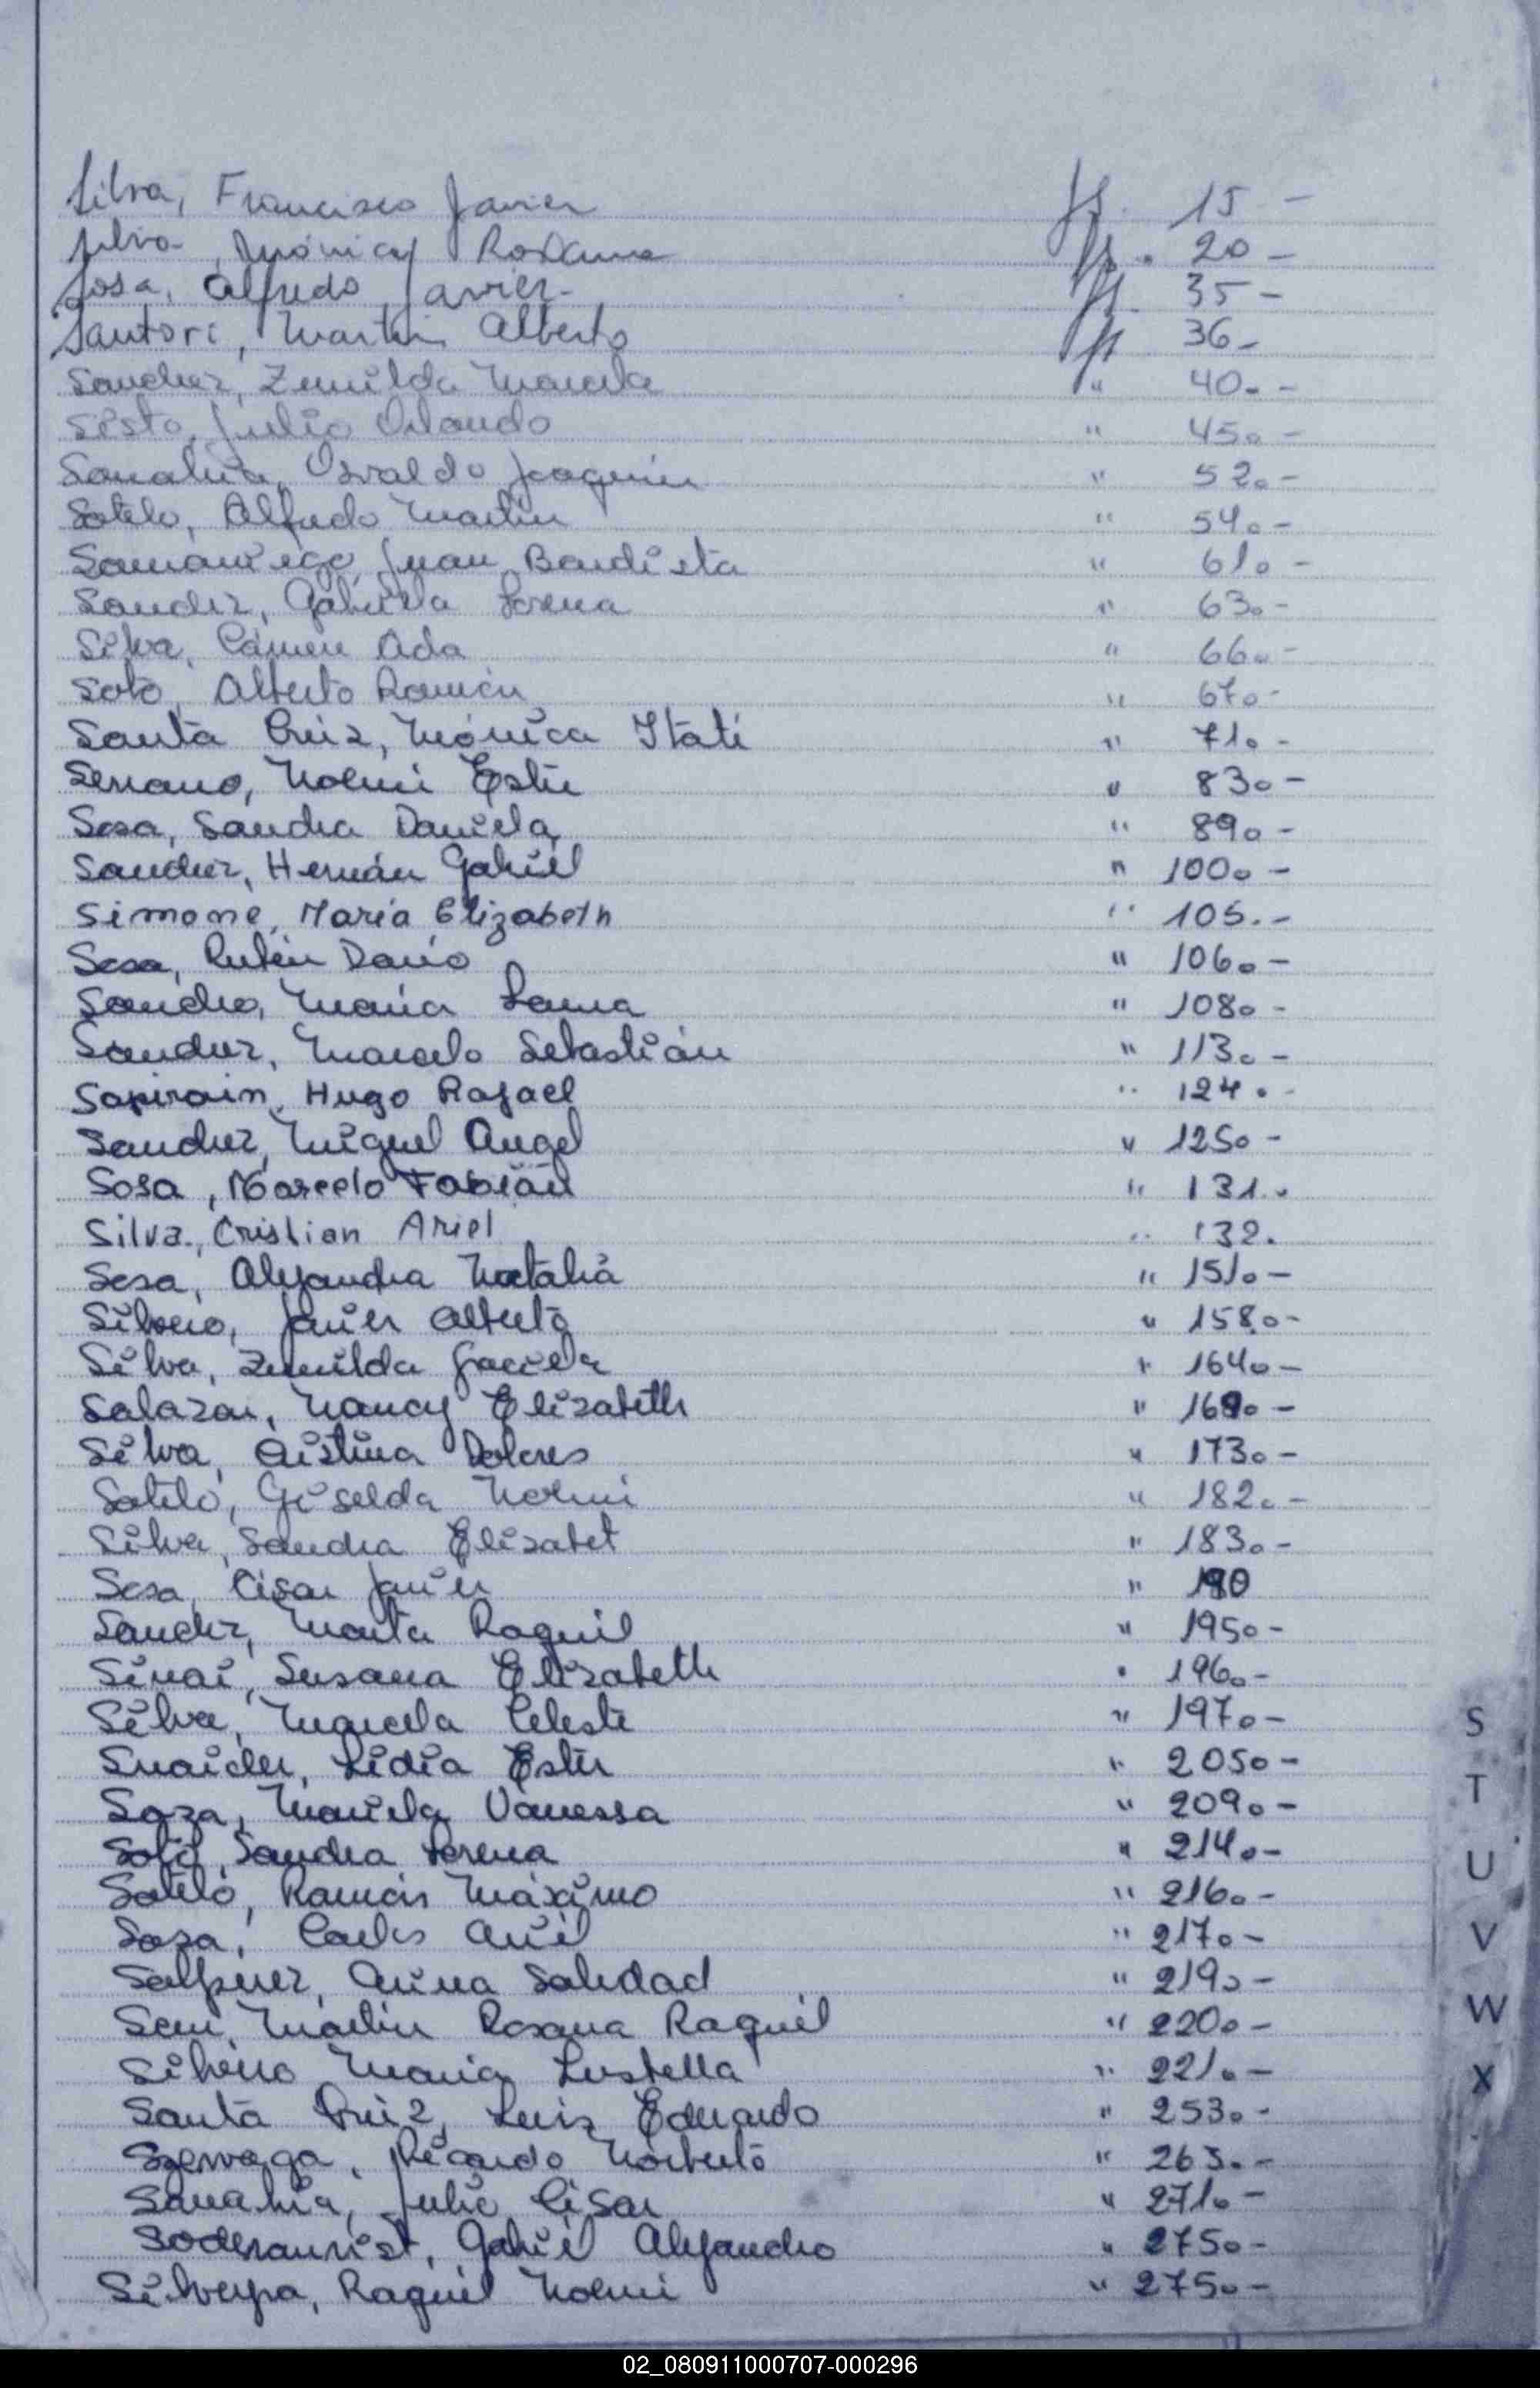 Silva, Francisco Javier fs. 15.-
Silva, Mónica Roxana fs. 20-
Sosa, Alfredo Javier- fs. 35-
Santori, Martín Alberto fs 36-
Sanchez, Zunilda Marcela " 40.-
Sisto, Julio Orlando " 45.-
Sanabria, Osvaldo Joaquín " 52.-
Sotelo, Alfredo Martín " 54.-
Samaniego, Juan Bautista " 61.-
Sanchez, Gabriela Lorena " 63.-
Silva, Cármen Ada " 66.-
Soto, Alberto Ramón " 67.-
Santa Cruz, Mónica Itatí " 71.-
Serrano, Noemi Ester " 83.-
Sosa, Sandra Daniela " 89.-
Sanchez, Hernán Gabriel " 100.-
Simone, María Elizabeth " 105.-
Sosa, Rubén Darío " 106.-
Sancho, María Laura " 108.-
Sanchez, Marcelo Sebastián " 113.-
Sapirain, Hugo Rafael " 124.-
Sanchez, Miguel Angel " 125.-
Sosa, Marcelo Fabián " 131..
Silva, Cristian Ariel " 132.
Sosa, Alejandra Natalia " 151.-
Silvero, Javier Alberto " 158.-
Silva, Zunilda Graciela " 164.-
Salazar, Nancy Elizabeth " 169.-
Silva, Cristina Dolores " 173.-
Sotelo, Griselda Noemi " 182.-
Silva, Sandra Elizabet " 183.-
Sosa, César Javier " 190
Sanchez, Marta Raquel " 195.-
Sinai, Susana Elizabeth " 196.-
Silva, Marcela Celeste " 197.-
Snaider, Lidia Ester " 205.-
Soza, Mariela Vanessa " 209.-
Soto, Sandra Lorena " 214.-
Sotelo, Ramón Máximo " 216.-
Sosa, Carlos Ariel " 217.-
Anina Soledad " 219.-
Martin Rosana Raquel " 220.-
Silvero María " 221.-
Santa Cruz, Luis Eduardo " 253.-
Ricardo Norberto " 263.-
Sanabria, Julio César " 271.-
Gabriel Alejandro " 275.-
Raquel Noemi " 275.-
S
T
U
V
W
X
02_080911000707-000296